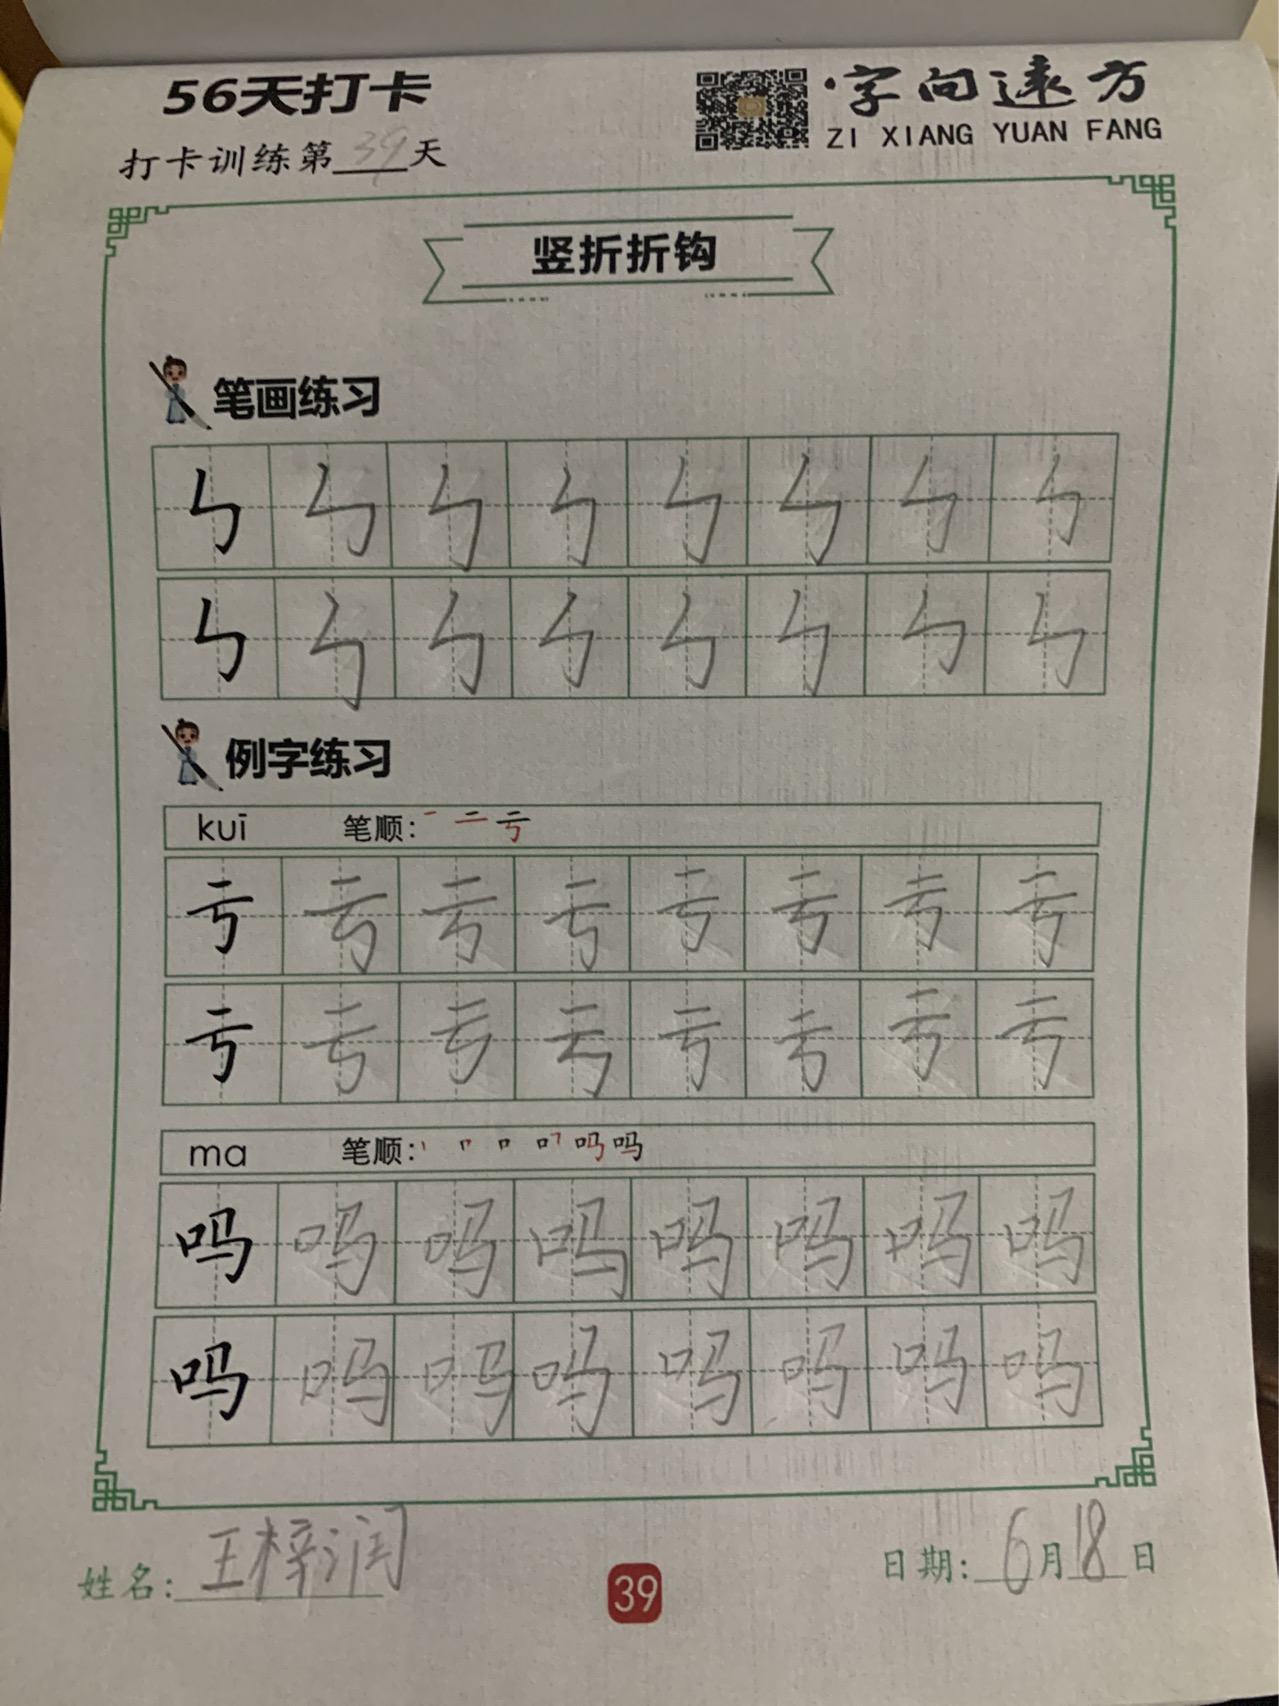 56天打卡
·字向远方
ZI XIANG YUAN FANG
打卡训练第39天
竖折折钩
笔画练习
ㄣ ㄣ ㄣ ㄣ ㄣ ㄣ ㄣ ㄣ
ㄣ ㄣ ㄣ ㄣ ㄣ ㄣ ㄣ ㄣ
例字练习
kuī 笔顺: 一 二 亏
亏 亏 亏 亏 亏 亏 亏 亏
亏 亏 亏 亏 亏 亏 亏 亏
ma 笔顺: 丨 𠃍 口 吗 吗
吗 吗 吗 吗 吗 吗 吗 吗
吗 吗 吗 吗 吗 吗 吗 吗
姓名: 王梓润
39
日期: 6月18日